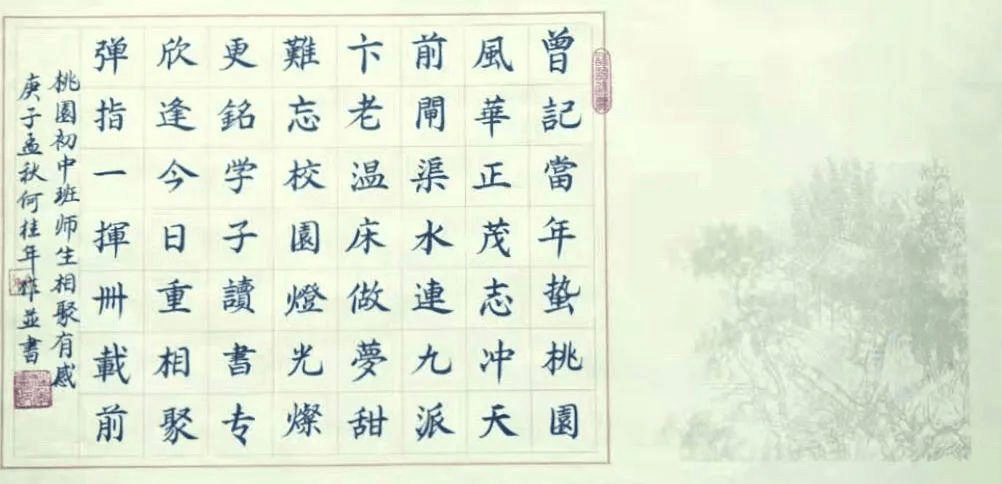 曾記當年蟄桃園
風華正茂志冲天
前閘渠水連九派
卞老温床做夢甜
難忘校園燈光燦
更銘学子讀書专
欣逢今日重相聚
弹指一揮卌載前
桃園初中班师生相聚有感
庚子孟秋何桂年作並書